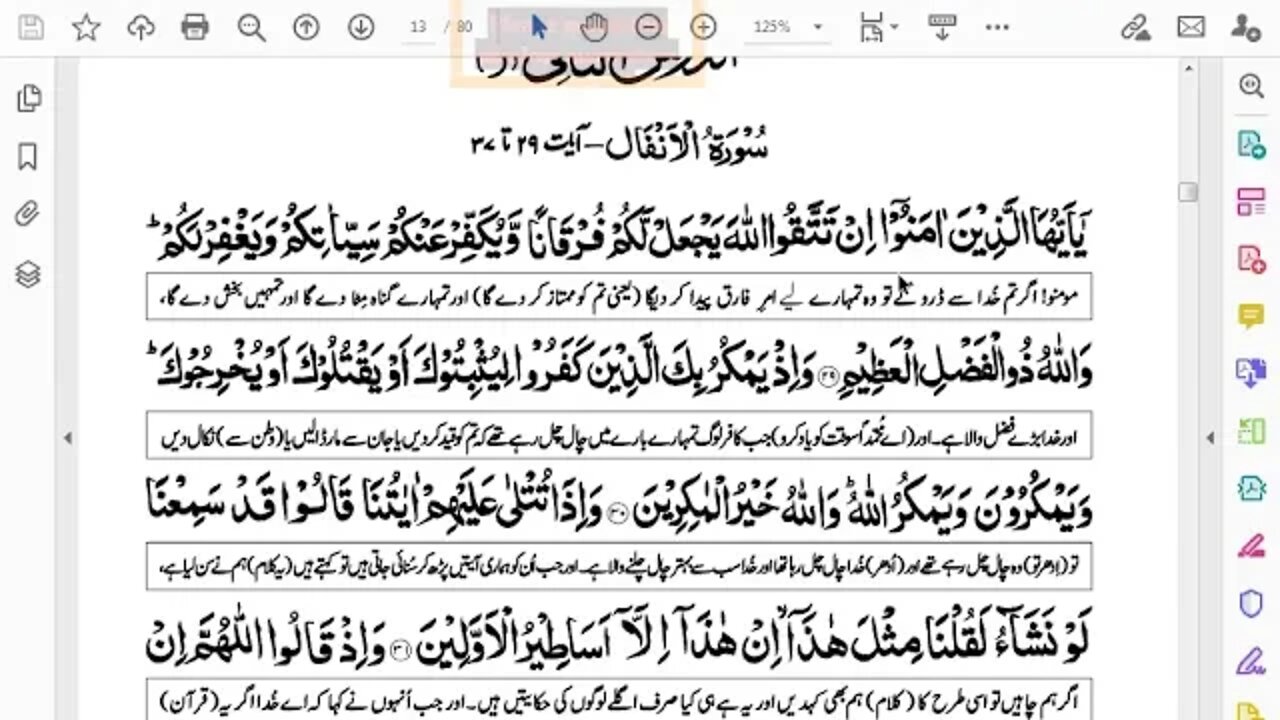 13 / 80
125%
سُوْرَةُ الْاَنْفَال – آیات ۲۹ تا ۳۷
يٰٓاَيُّهَا الَّذِيْنَ اٰمَنُوْٓا اِنْ تَتَّقُوا اللّٰهَ يَجْعَلْ لَّكُمْ فُرْقَانًا وَّيُكَفِّرْ عَنْكُمْ سَيِّاٰتِكُمْ وَيَغْفِرْ لَكُمْ ؕ
مومنو! اگر تم خُدا سے ڈرو گے تو وہ تمہارے لیے امرِ فارق پیدا کر دیگا (یعنی تم کو ممتاز کر دے گا) اور تمہارے گناہ مٹا دے گا اور تمہیں بخش دے گا،
وَاللّٰهُ ذُو الْفَضْلِ الْعَظِيْمِ ۝۲۹ وَاِذْ يَمْكُرُ بِكَ الَّذِيْنَ كَفَرُوْا لِيُثْبِتُوْكَ اَوْ يَقْتُلُوْكَ اَوْ يُخْرِجُوْكَ ؕ
اور خدا بڑے فضل والا ہے۔ اور (اے مُحمّد اُسوقت کو یاد کرو) جب کافر لوگ تمہارے بارے میں چال چل رہے تھے کہ تم کو قید کر دیں یا جان سے مار ڈالیں یا (وطن سے) نکال دیں
وَيَمْكُرُوْنَ وَيَمْكُرُ اللّٰهُ ؕ وَاللّٰهُ خَيْرُ الْمٰكِرِيْنَ ۝۳۰ وَاِذَا تُتْلٰى عَلَيْهِمْ اٰيٰتُنَا قَالُوْا قَدْ سَمِعْنَا
تو (اِدھر تو) وہ چال چل رہے تھے اور (اُدھر) خُدا چال چل رہا تھا اور خُدا سب سے بہتر چال چلنے والا ہے۔ اور جب اُن کو ہماری آیتیں پڑھ کر سُنائی جاتی ہیں تو کہتے ہیں (یہ کلام) ہم نے سن لیا ہے،
لَوْ نَشَآءُ لَقُلْنَا مِثْلَ هٰذَآ ۙ اِنْ هٰذَآ اِلَّآ اَسَاطِيْرُ الْاَوَّلِيْنَ ۝۳۱ وَاِذْ قَالُوا اللّٰهُمَّ اِنْ
اگر ہم چاہیں تو اسی طرح کا (کلام) ہم بھی کہدیں اور یہ ہے ہی کیا صرف اگلے لوگوں کی حکایتیں ہیں۔ اور جب اُنہوں نے کہا کہ اے خُدا اگر یہ (قرآن)